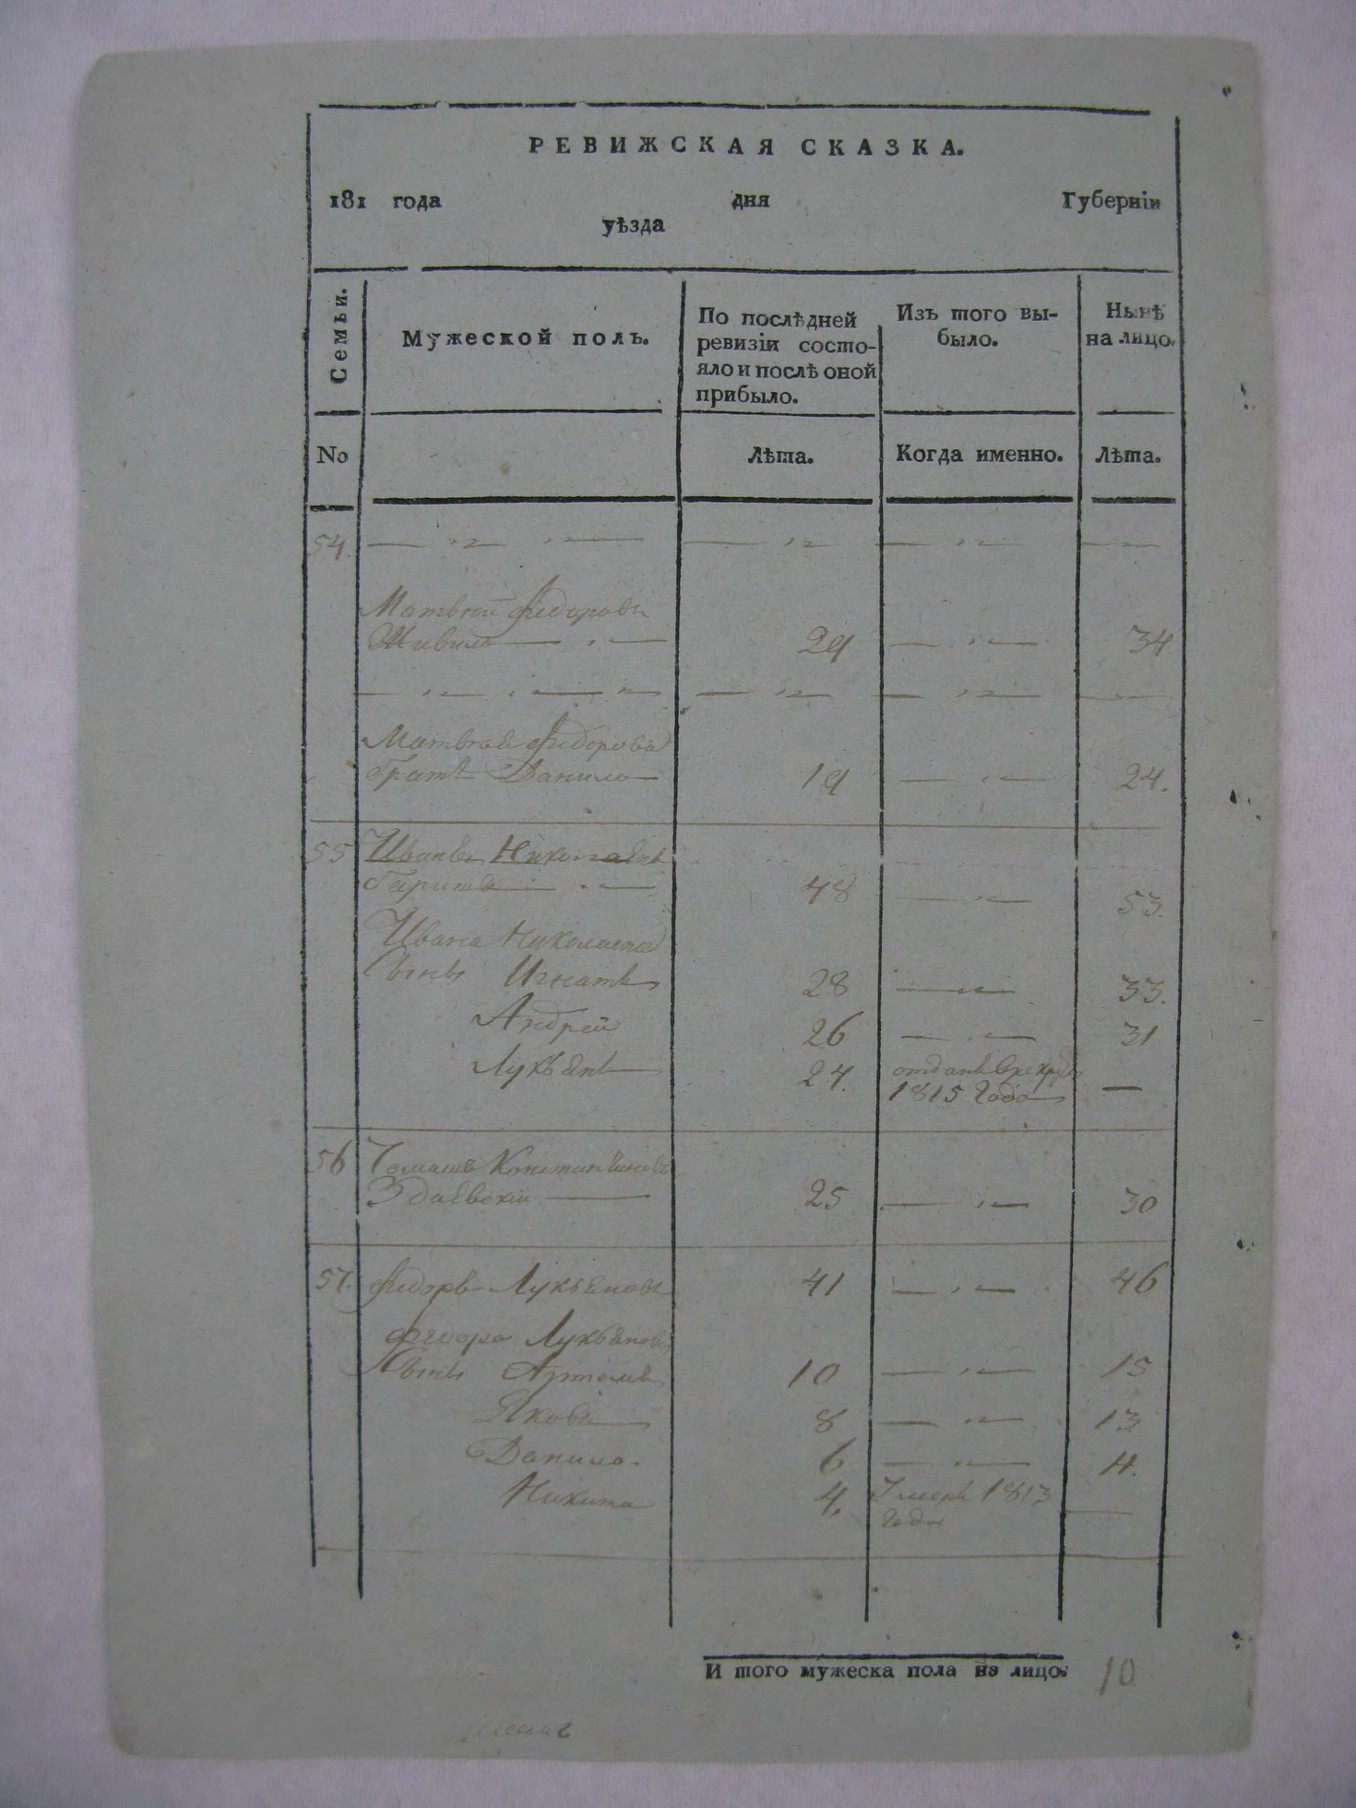 РЕВИЖСКАЯ СКАЗКА.
181 года дня Губерніи
уѣзда
Семьи.
Мужеской полъ.
По послѣдней ревизіи состо-
яло и послѣ оной
прибыло.
Изъ того вы-
было.
Нынѣ
на лицо.
No
Лѣта.
Когда именно.
Лѣта.
54.
Матвей Федоровъ
29 34
Матвея Федорова
братъ Данило 19 24.
55 Иванъ Николаевъ
48 53.
Ивана Николаева
Сынъ Игнатъ 28 33.
Андрей 26 31
Лукьянъ 24. отданъ в рекруты
1815 Года —
56 Константиновъ
25 30
57. Федоръ Лукьяновъ 41 46
Федора Лукьянова
Сынъ Артемъ 10 15
Яковъ 8 13
Данило. 6 11.
Никита 4. Умеръ 1813
года
И того мужеска пола на лицо. 10